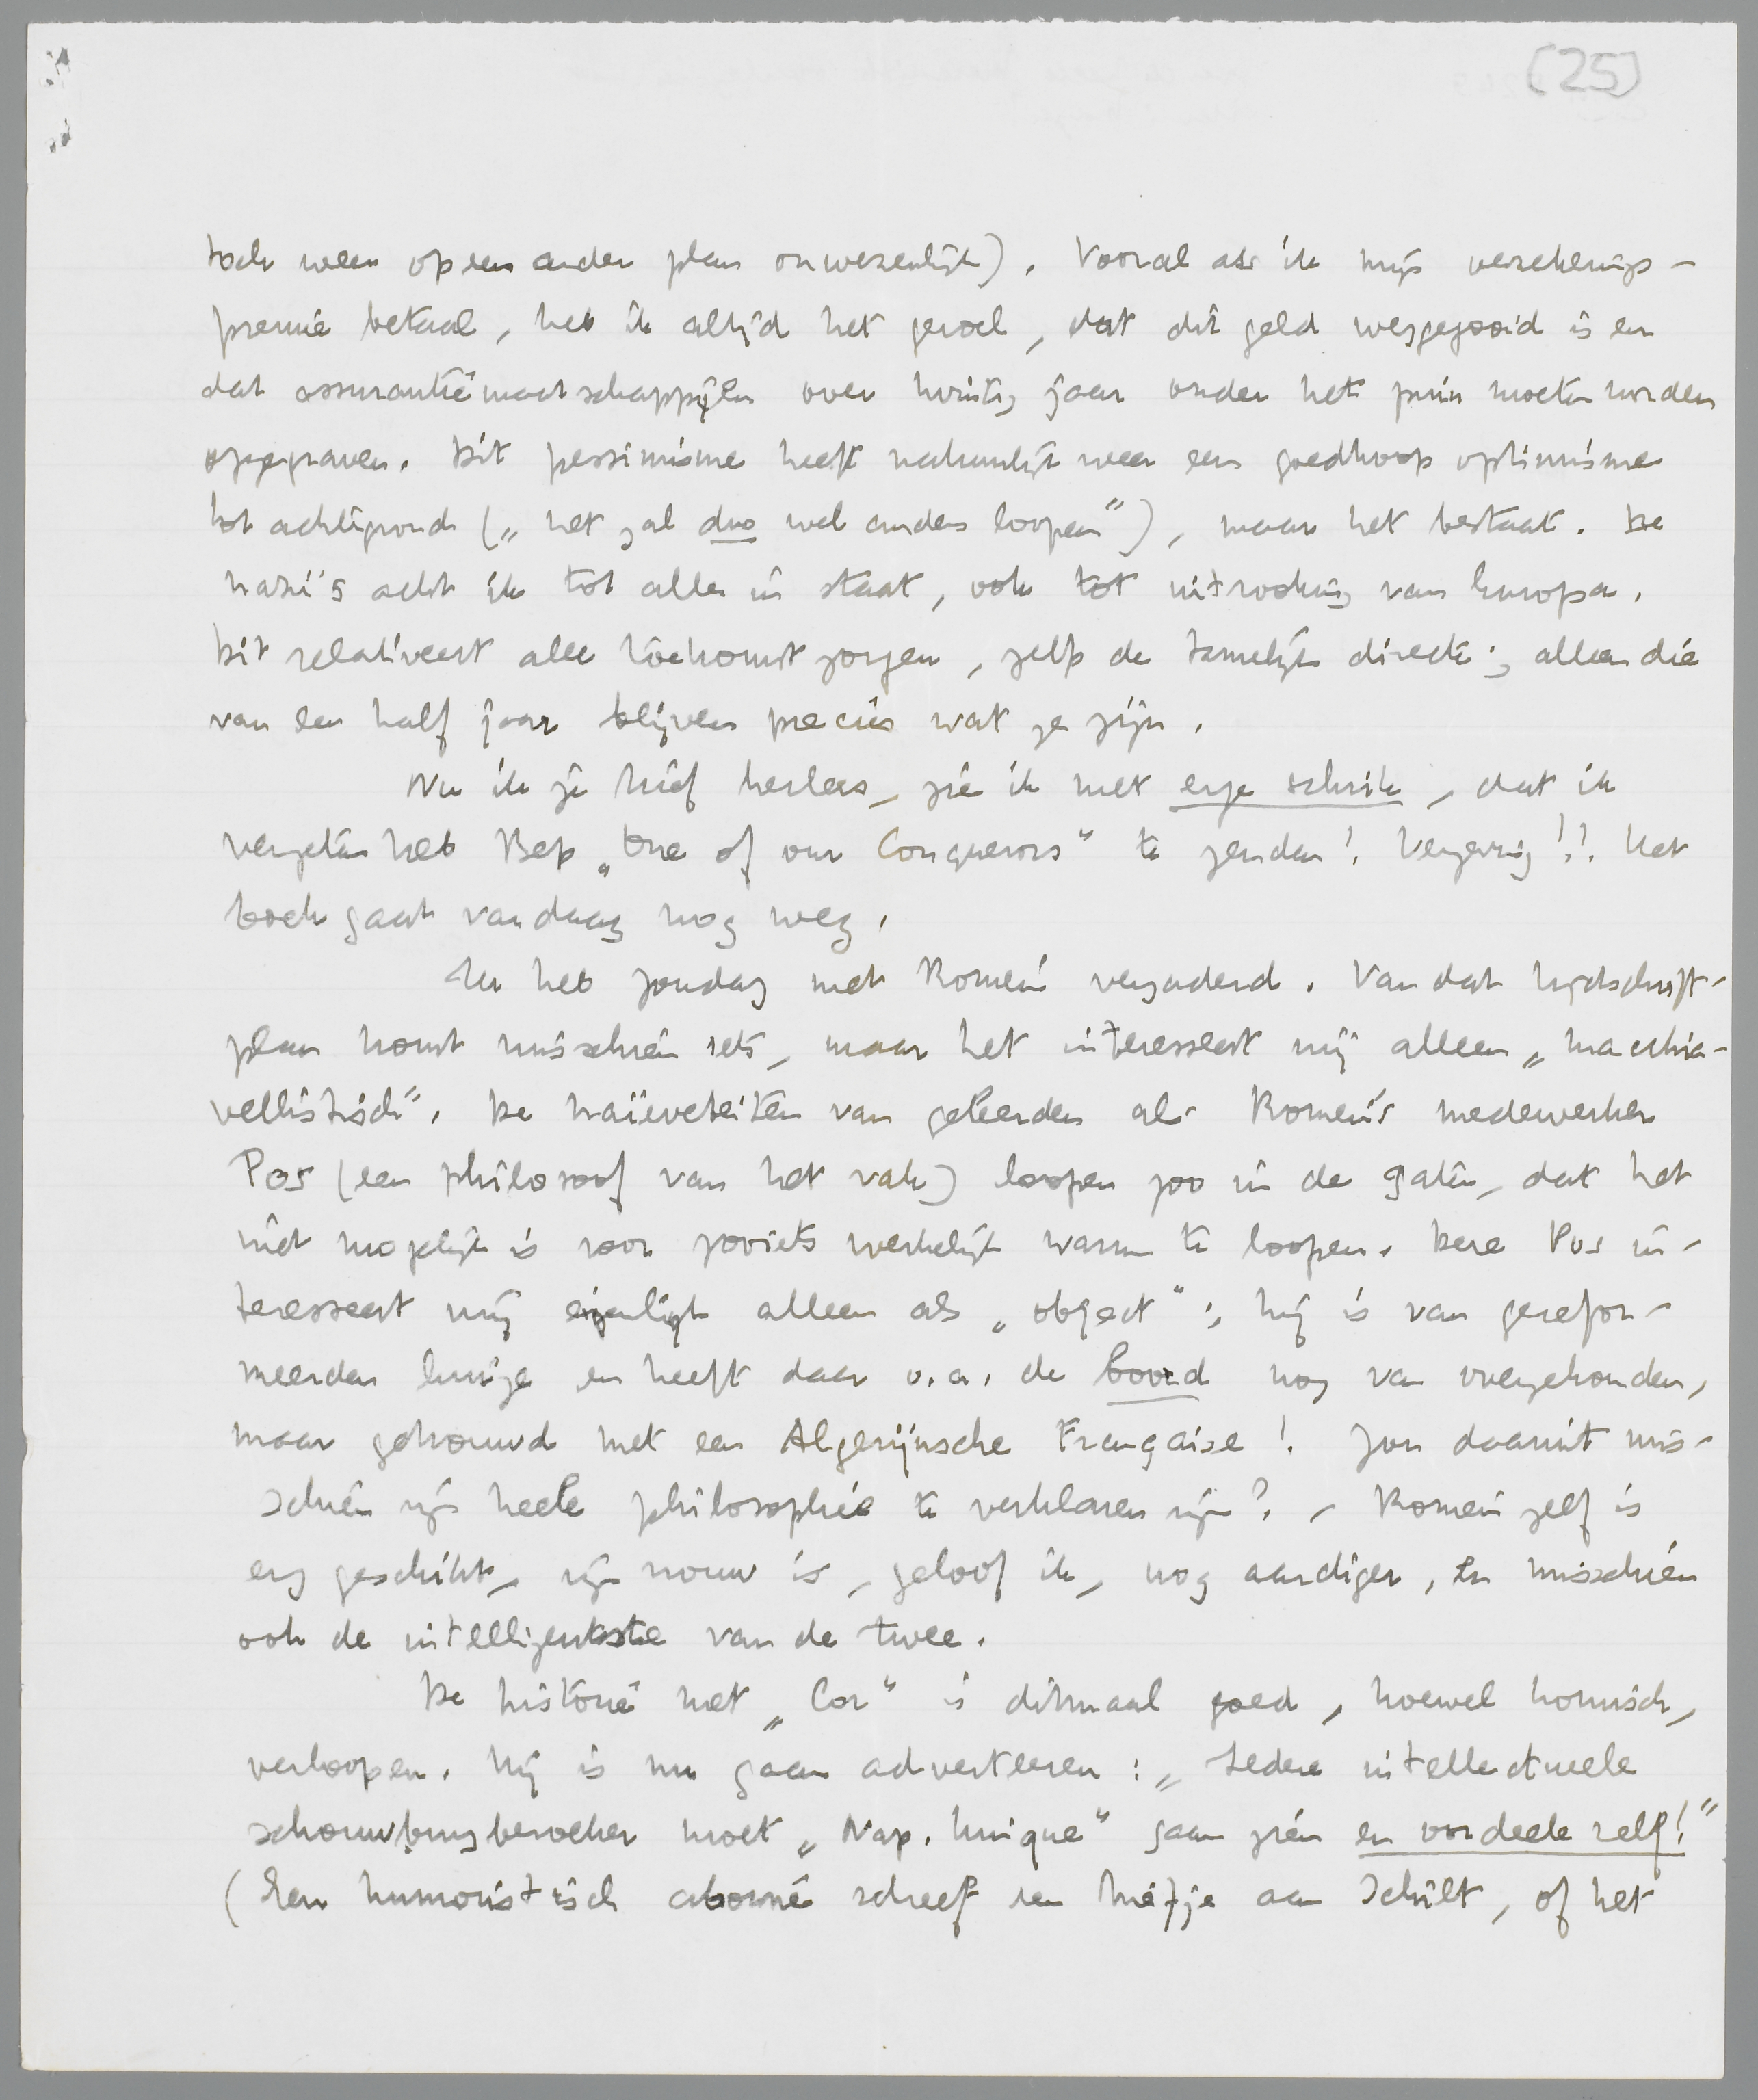 (25)
toch weer op een ander plan onwezenlijk). Vooral als ik mijn verzekerings-
premie betaal, heb ik altijd het gevoel, dat dit geld weggegooid is en
dat assurantiemaatschappijen over twintig jaar onder het puin moeten worden
opgegraven. Dit pessimisme heeft natuurlijk weer een goedkoop optimisme
tot achtergrond („het zal dus wel anders loopen"), maar het bestaat. De
nazi's acht ik tot alles in staat, ook tot uitroeiing van Europa.
Dit relativeert alle toekomstzorgen, zelfs de tamelijk directe; alleen die
van een half jaar blijven precies wat ze zijn.
Nu ik je brief herlees, zie ik met erge schrik, dat ik
vergeten heb Bep „One of our Conquerors" te zenden! Vergeving!! Het
boek gaat vandaag nog weg.
Ik heb Zondag met Romein vergaderd. Van dat tijdschrift-
plan komt misschien iets, maar het interesseert mij alleen „macchia-
vellistisch". De naïeveteiten van geleerden als Romein's medewerker
Pos (een philosoof van het vak) loopen zoo in de gaten, dat het
niet mogelijk is voor zooiets werkelijk warm te loopen. Deze Pos in-
teresseert mij eigenlijk alleen als „object"; hij is van gerefor-
meerden huize en heeft daar o.a. de baard nog van overgehouden,
maar getrouwd met een Algerijnsche Française! Zou daaruit mis-
schien zijn heele philosophie te verklaren zijn? – Romein zelf is
erg geschikt, zijn vrouw is, geloof ik, nog aardiger, en misschien
ook de intelligentste van de twee.
De historie met „Cor" is ditmaal goed, hoewel komisch,
verloopen. Hij is nu gaan adverteeren: „Iedere intellectueele
schouwburgbezoeker moet „Nap. Unique" gaan zien en oordeele zelf!"
(Een humoristisch abonné schreef een briefje aan Schilt, of het